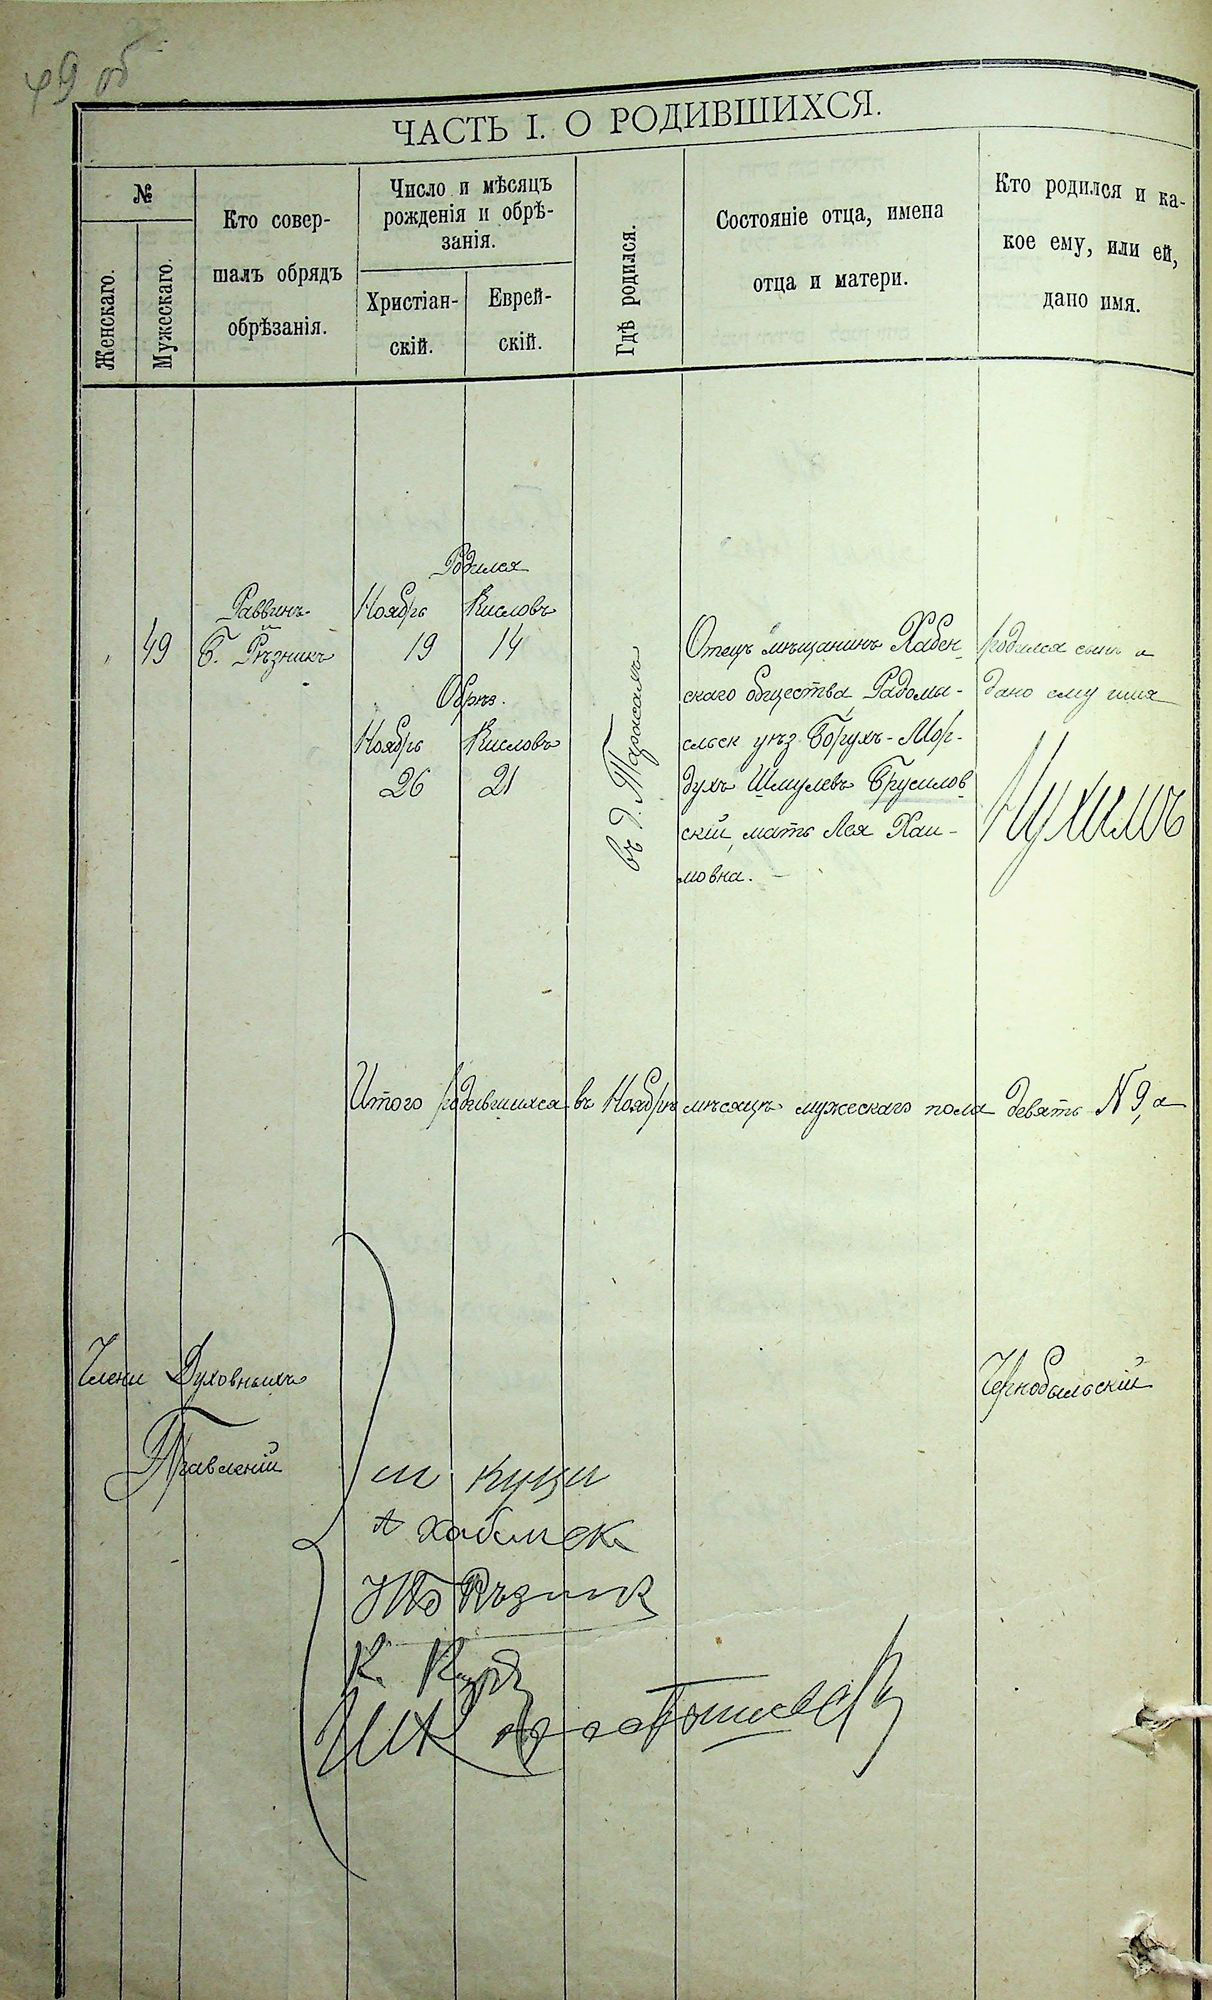 49 об
ЧАСТЬ I. О РОДИВШИХСЯ.
№
Женскаго.
Мужескаго.
Кто совер-
шалъ обрядъ
обрѣзанія.
Число и мѣсяцъ
рожденія и обрѣ-
занія.
Христіан-
скій.
Еврей-
скій.
Гдѣ родился.
Состояніе отца, имена
отца и матери.
Кто родился и ка-
кое ему, или ей,
дано имя.
49
Раввинъ
Б. Рѣзникъ
Родился
Ноябрь Кисловъ
19 14
Обрѣз.
Ноябрь Кисловъ
26 21
въ д.
Отецъ мѣщанинъ Хабен-
скаго общества, Радомы-
сльск уѣз. Борухъ-Мор-
духъ Шмулевъ Брусилов-
скій, мать Лея Хаи-
мовна. —
родился сынъ и
дано ему имя
Нухимъ
Итого родившихся въ Ноябрѣ мѣсяцѣ мужескаго пола девять N 9, а
Члени Духовныхъ
Правленій
Чернобыльскій
К.